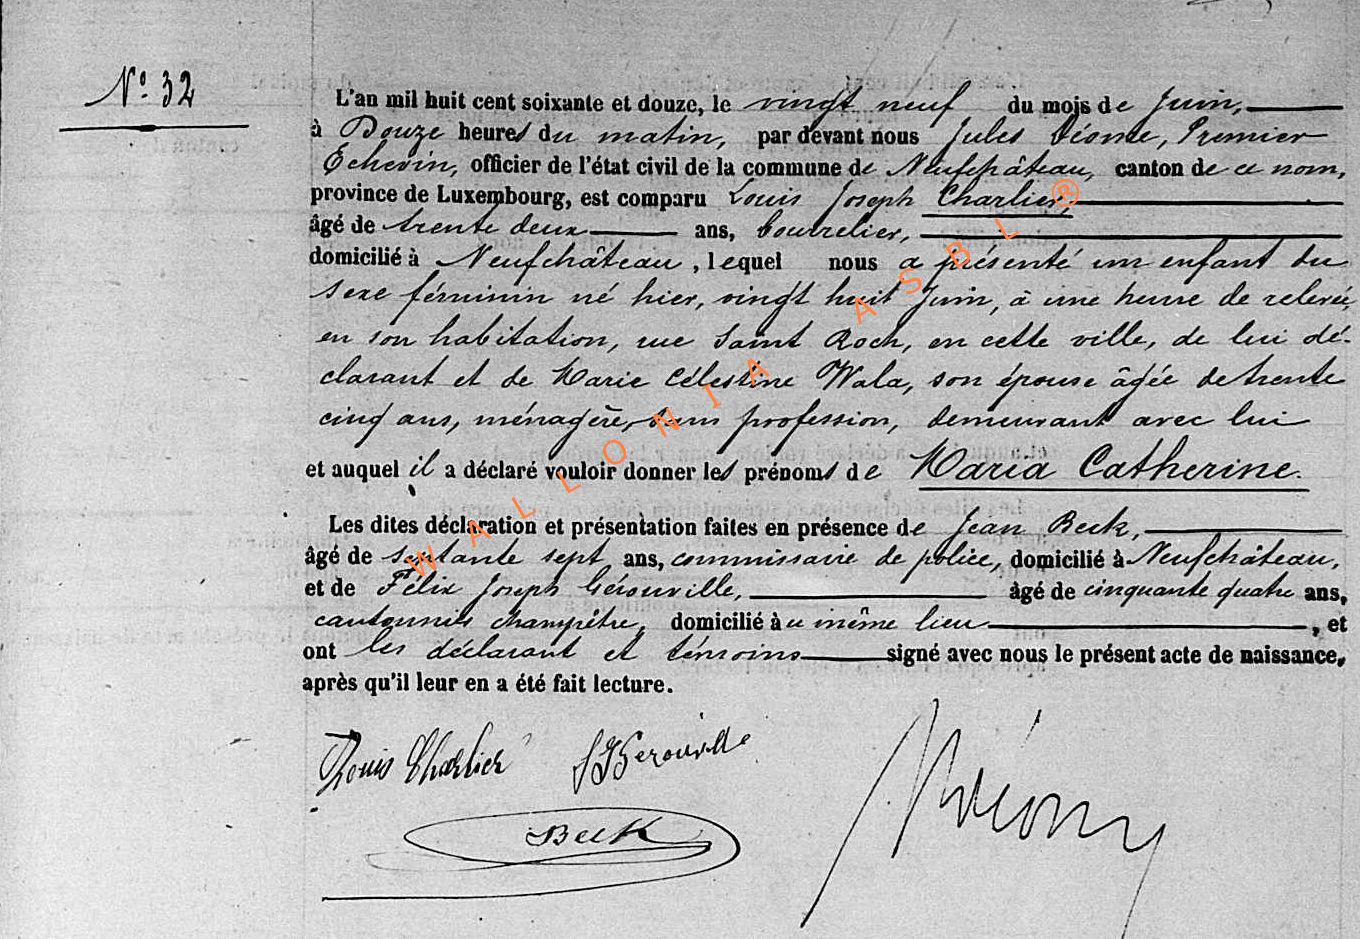 N° 32
L'an mil huit cent soixante et douze, le vingt neuf du mois de Juin,
à Douze heures du matin, par devant nous Jules Premier
Echevin, officier de l'état civil de la commune de Neufchâteau, canton de ce nom,
province de Luxembourg, est comparu Louis Joseph Charlier,
âgé de trente deux ans, bourrelier,
domicilié à Neufchâteau, lequel nous a présenté un enfant du
sexe féminin né hier, vingt huit Juin, à une heure de relevée,
en son habitation, rue Saint Roch, en cette ville, de lui dé-
clarant et de Marie Célestine Wala, son épouse âgée de trente
cinq ans, ménagère, sans profession, demeurant avec lui
et auquel il a déclaré vouloir donner les prénoms de Maria Catherine.
Les dites déclaration et présentation faites en présence de Jean Beck,
âgé de septante sept ans, commissaire de police, domicilié à Neufchâteau,
et de Félix Joseph Gérouville, âgé de cinquante quatre ans,
champêtre, domicilié à même lieu, et
ont les déclarant et témoins signé avec nous le présent acte de naissance,
après qu'il leur en a été fait lecture.
Louis Charlier FJGerouville
Beck
WALLONIA ASBL ®